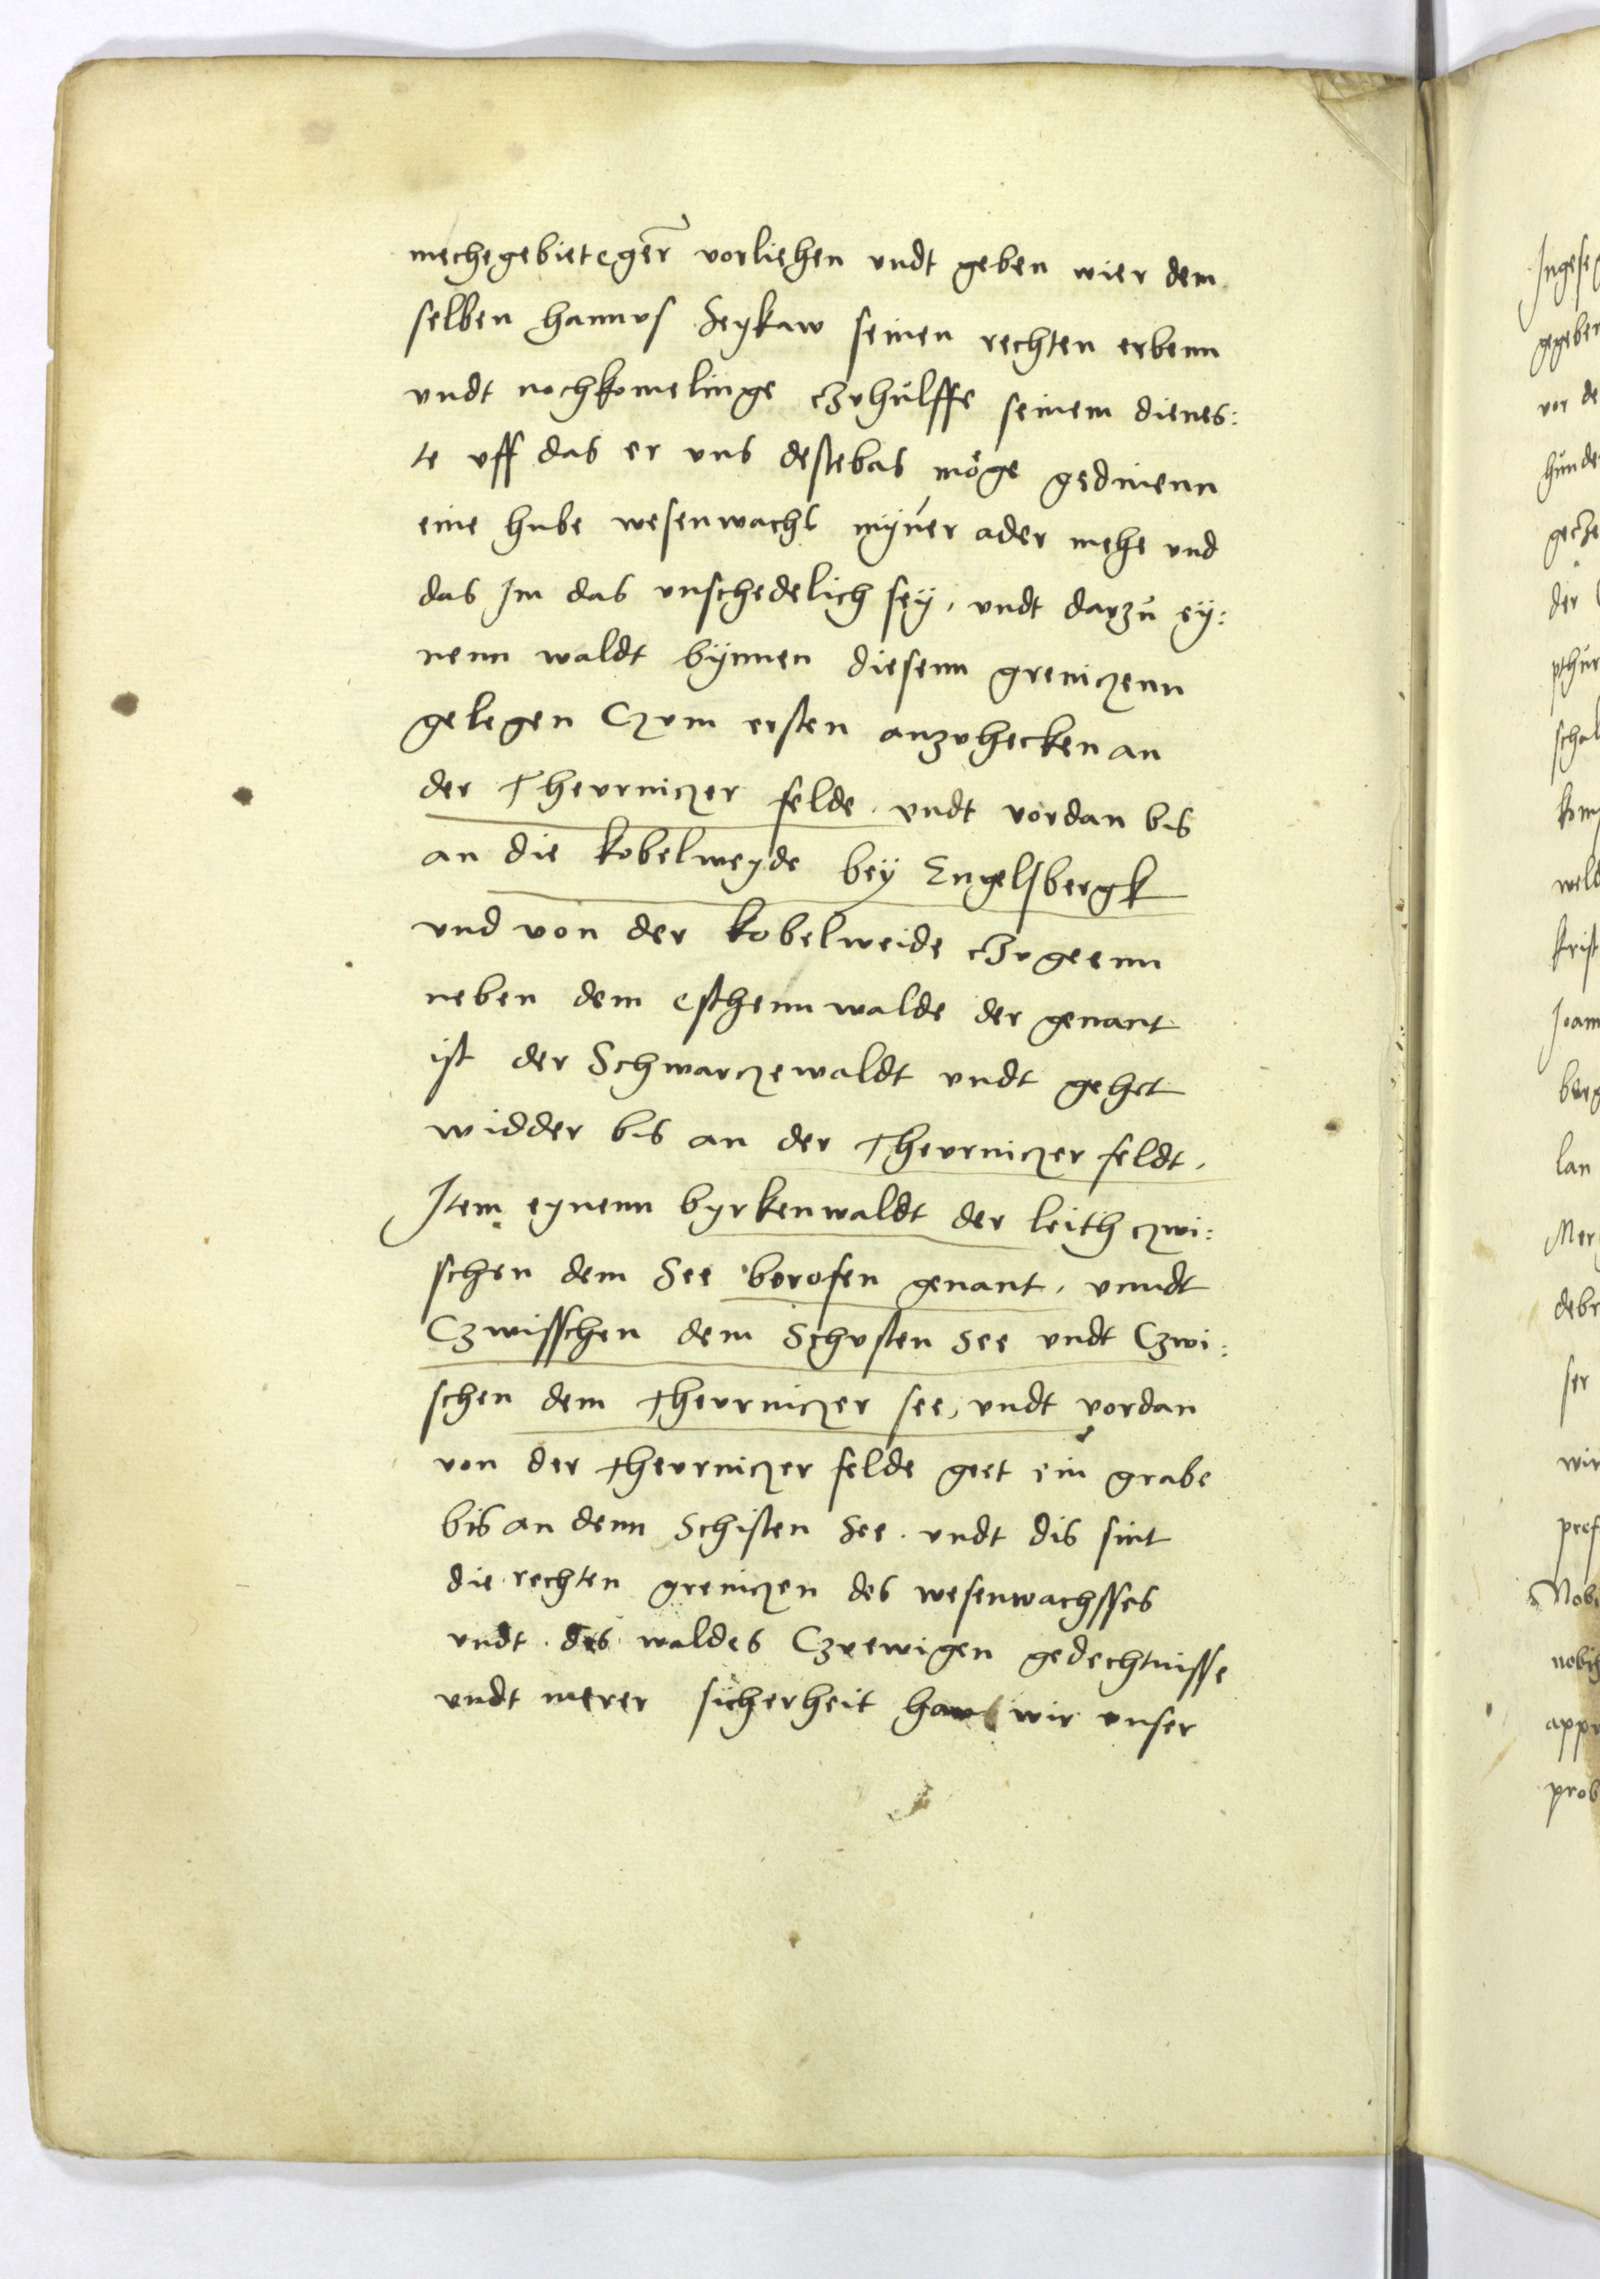 mechegebiteger vorliehen undt geben wier dem
selben hannus Seykaw seinen rechten erbenn
undt nochkomelinge Czuhülffe seinem dienes:
te uff das er uns destebas möge gedinenn
eine hube wesenwachs myner ader mehe und
das Im das unschedelich sey, undt darzu ey:
nenn waldt bynnen diesenn greniczenn
gelegen Czum ersten anzuhecken an
der Theurniczer felde undt vordan bis
an die kobelweyde bey Engelsbergk
und von der kobelweide Czugeenn
neben dem eschennwalde der genant
ist der Schwarczewaldt undt gehet
widder bis an der Theurniczer feldt,
Item eynenn byrkenwaldt der leith czwi:
schen dem See borosen genant, unndt
Czwisschen dem Schusten See undt Czwi:
schen dem theurniczer see, undt vordan
von der theurniczer felde geet ein grabe
bis an denn Schisten See. undt dis sint
die rechten greniczen des wesenwachsses
undt des waldes Czuewigen gedechtnisse
undt merer sicherheit wir unser
Ingese
gegeben
vor de
hunde
der
kom
krist
Joan
berg
lan
debr
ser
wir
prob